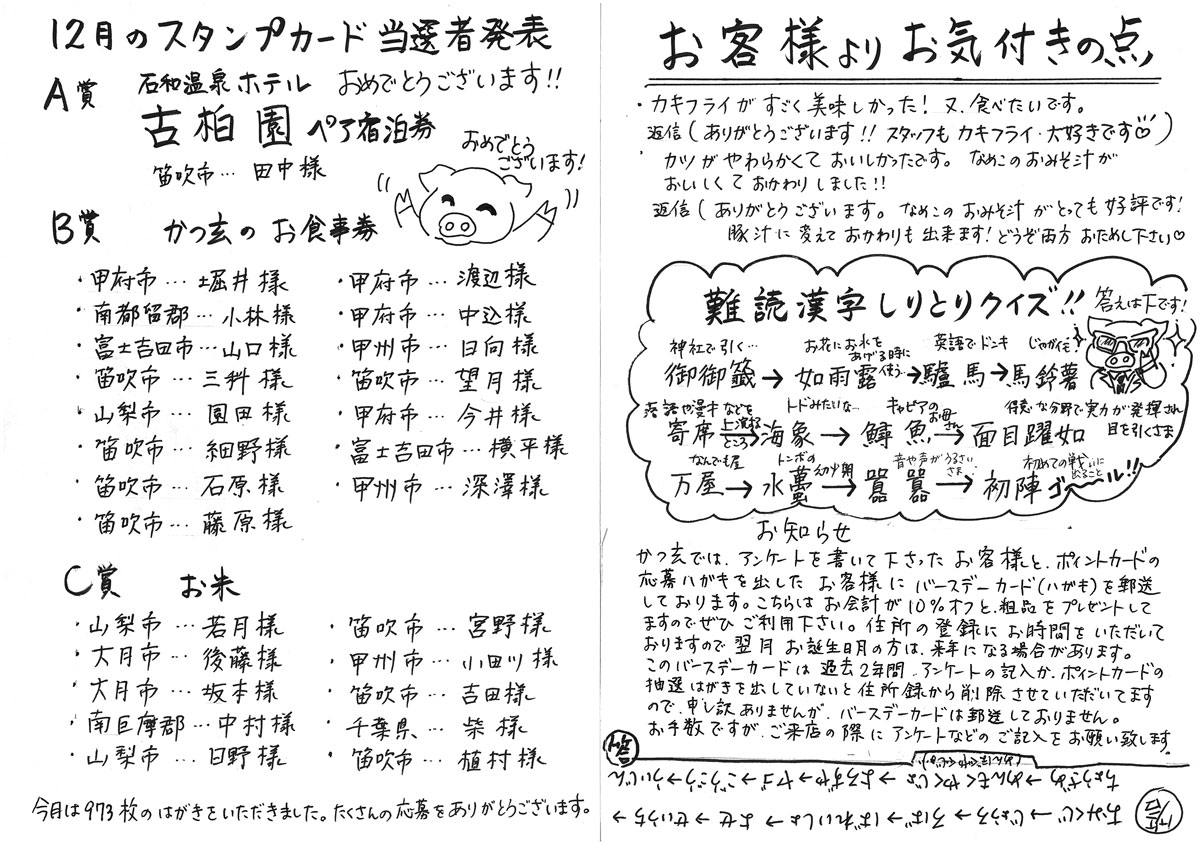 12月のスタンプカード当選者発表
A賞 石和温泉ホテル おめでとうございます!!
古柏園 ペア宿泊券
笛吹市… 田中様
おめでとう
ございます!
B賞 かつ玄の お食事券
・甲府市… 堀井様
・南都留郡… 小林様
・富士吉田市… 山口様
・笛吹市… 三科様
・山梨市… 園田様
・笛吹市… 細野様
・笛吹市… 石原様
・笛吹市… 藤原様
・甲府市… 渡辺様
・甲府市… 中込様
・甲州市… 日向様
・笛吹市… 望月様
・甲府市… 今井様
・富士吉田市… 横平様
・甲州市… 深澤様
C賞 お米
・山梨市… 若月様
・大月市… 後藤様
・大月市… 坂本様
・南巨摩郡… 中村様
・山梨市… 日野様
・笛吹市… 宮野様
・甲州市… 小田切様
・笛吹市… 吉田様
・千葉県… 柴様
・笛吹市… 植村様
今月は973枚のはがきをいただきました。たくさんの応募をありがとうございます。
お客様より お気付きの点
・カキフライがすごく美味しかった!又、食べたいです。
返信(ありがとうございます!!スタッフもカキフライ・大好きです♡)
・カツがやわらかくておいしかったです。なめこのおみそ汁が
おいしくておかわりしました!!
返信(ありがとうございます。なめこのおみそ汁がとっても好評です!
豚汁に変えておかわりも出来ます!どうぞ両方おためし下さい♡
難読漢字しりとりクイズ!! 答えは下です!
神社で引く… お花にお水をあげる時に使う… 英語でドンキ じゃがイモ!
御御籤→如雨露→驢馬→馬鈴薯
落語や漫才などを上演するところ トドみたいな… キャビアのお母さん 得意な分野で実力が発揮され目を引くさま
寄席→海象→鱘魚→面目躍如
なんでも屋 トンボの幼少期 音や声がうるさいさま 初めての戦いに出ること
万屋→水蠆→囂囂→初陣 ゴ〜〜ル!!
お知らせ
かつ玄では、アンケートを書いて下さったお客様と、ポイントカードの
応募ハガキを出したお客様にバースデーカード(ハガキ)を郵送
しております。こちらはお会計が10%オフと、粗品をプレゼントして
ますのでぜひご利用下さい。住所の登録にお時間をいただいて
おりますので翌月お誕生日月の方は、来年になる場合があります。
このバースデーカードは過去2年間、アンケートの記入か、ポイントカードの
抽選はがきを出していないと住所録から削除させていただいてます
ので、申し訳ありませんが、バースデーカードは郵送しておりません。
お手数ですが、ご来店の際にアンケートなどのご記入をお願い致します。
答
おみくじ→じょうろ→ろば→ばれいしょ→よせ→せいうち→
ちょうざめ→めんもくやくじょ→よろずや→ヤゴ→ごうごう→ういじん